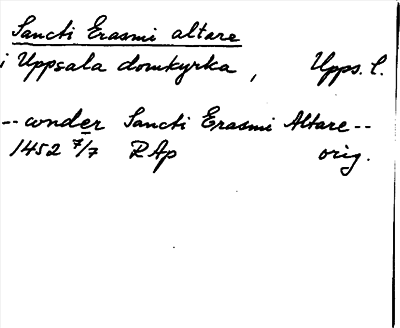 Sancti Erasmi altare
i Uppsala domkyrka, Upps. l.
-- wnder Sancti Erasmi Altare --
1452 7/7 RAp orig.